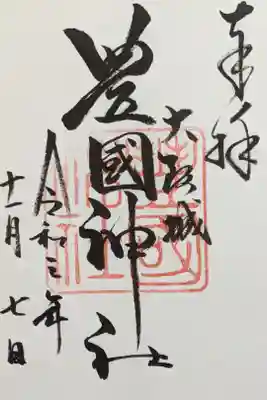 奉拝
大阪城
豊國神社
令和三年
十一月七日